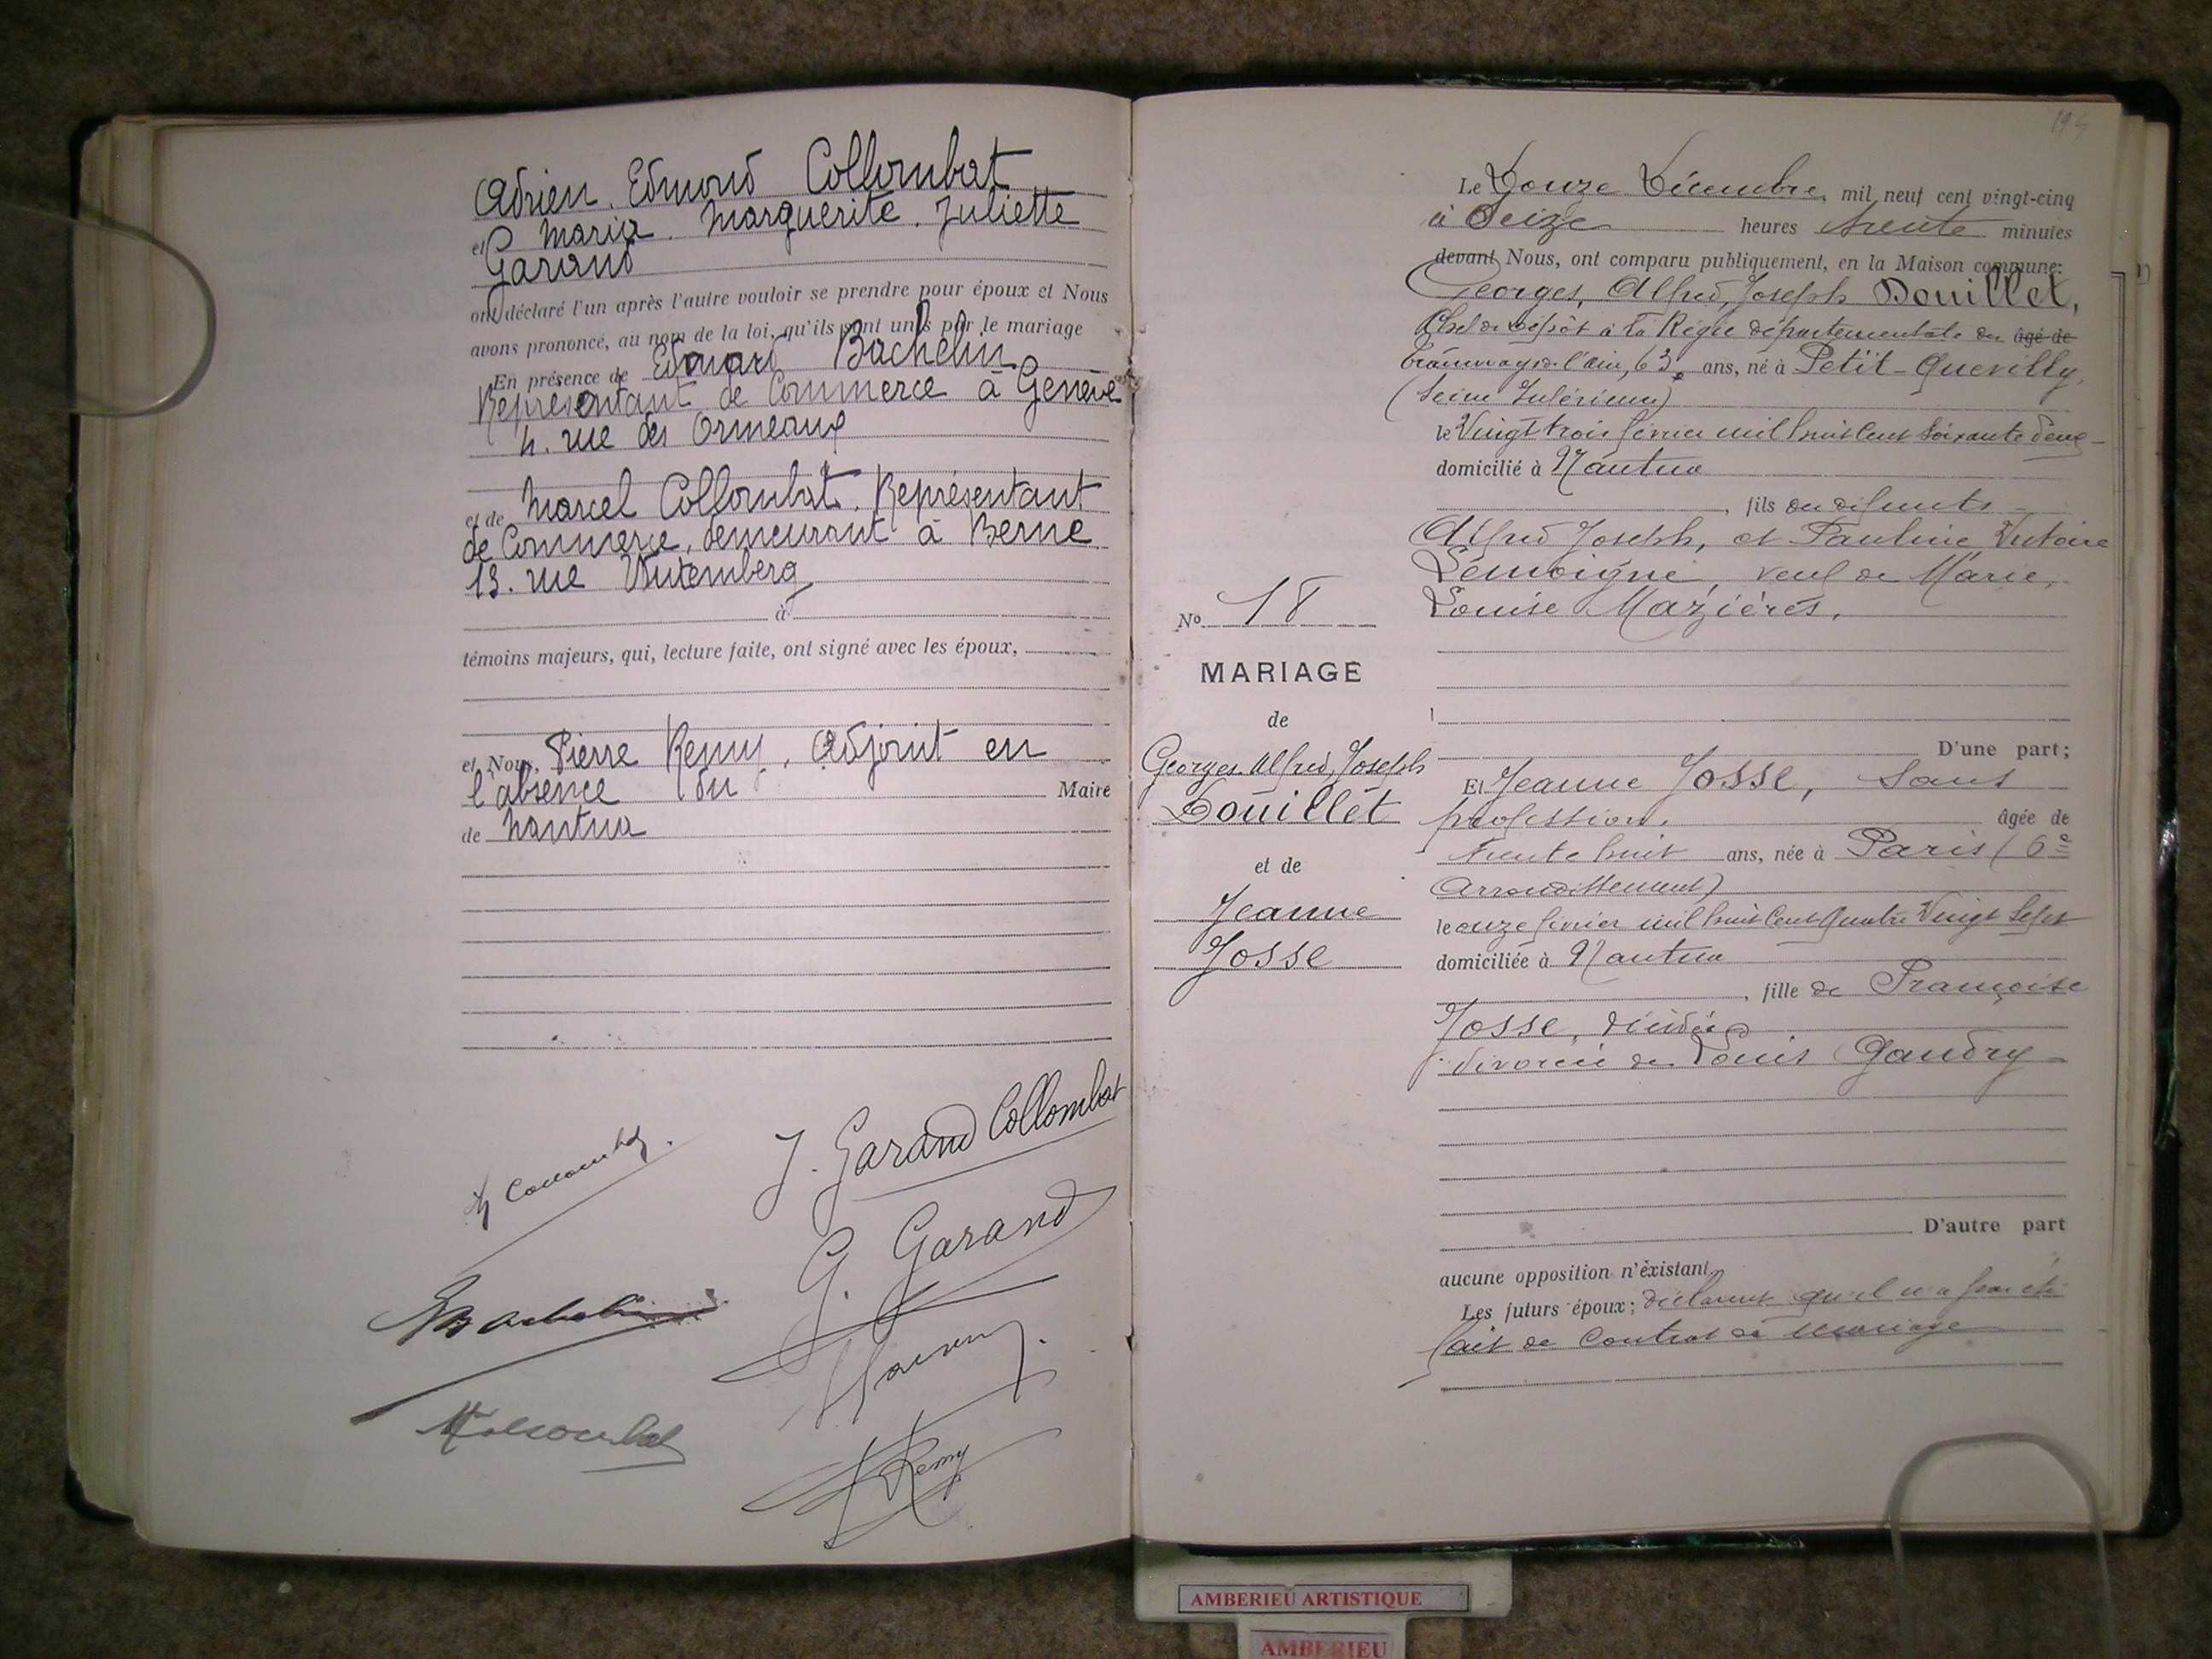 Adrien, Edmond Collombat
et Maria, Marguerite, Juliette
Garand
ont déclaré l'un après l'autre vouloir se prendre pour époux et Nous
avons prononcé, au nom de la loi, qu'ils sont unis par le mariage
En présence de Edouard Bachelin
Représentant de Commerce à Genève
4. rue des Ormeaux
et de Marcel Collombat, Représentant
de Commerce, demeurant à Berne
13. rue Wutemberg
à
témoins majeurs, qui, lecture faite, ont signé avec les époux,
et Nous, Pierre Remy, adjoint en
l'absence du Maire
de Nantua
J. Garand Collombat
G. Garand
Remy
194
Le Douze Décembre, mil neuf cent vingt-cinq
à Seize heures trente minutes
devant Nous, ont comparu publiquement, en la Maison commune:
Georges, Alfred, Joseph Douillet,
Chef de Dépôt à la Régie départementale des âgé de
tramways de l'Ain, 63 ans, né à Petit-Quevilly,
(Seine Inférieure)
le Vingt trois février mil huit Cent Soixante deux
domicilié à Nantua
, fils de défunts
Alfred Joseph, et Pauline Victoire
Lemoigne, veuf de Marie,
Louise Mazières,
D'une part;
No 18
MARIAGE
de
Georges, Alfred, Joseph
Douillet
et de
Jeanne
Josse
Et Jeanne Josse, Sans
profession, âgée de
trente huit ans, née à Paris (6e
Arrondissement)
le onze février mil huit Cent Quatre Vingt Sept
domiciliée à Nantua
, fille de Françoise
Josse, décédée
divorcée de Louis Gaudry
D'autre part
aucune opposition n'existant
Les futurs époux; déclarent qu'il n'a pas été
fait de Contrat de mariage
AMBERIEU ARTISTIQUE
AMBERIEU